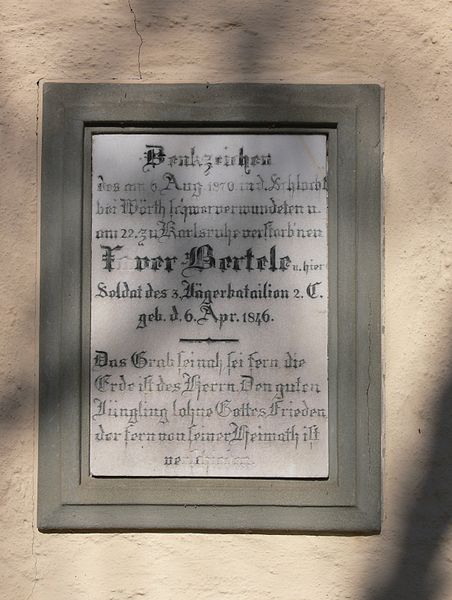 Denkzeichen
des am 6. Aug. 1870 in d. Schlacht
bei Wörth schwer verwundeten u.
am 22. zu Karlsruhe verstorb'nen
Xaver Bertele u. hier
Soldat des 3. Jägerbatailion 2. C.
geb. d. 6. Apr. 1846.
Das Grab sei nah sei fern die
Erde ist des Herrn. Den guten
Jüngling lohne Gottes Frieden
der fern von seiner Heimath ist
verschieden.